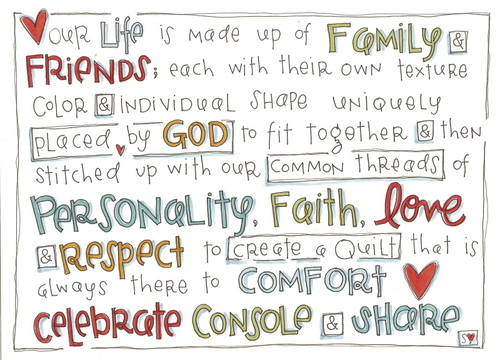 our Life is made up of Family &
Friends; each with their own texture
color & individual shape uniquely
placed by GOD to fit together & then
stitched up with our common threads of
Personality, Faith, love
& respect to create a Quilt that is
always there to COMFORT
celebrate Console & share